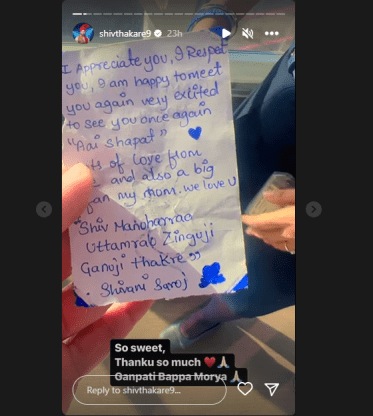 shivthakare9 23h
I Appreciate you, I Respet
you, I am happy to meet
you again very excited
to see you once again
"Aai shapat"
of love from
and also a big
my mom. we love U
"Shiv Manoharrao
Uttamrao Zinguji
Ganuji thakre"
. Shivani Saroj
So sweet,
Thanku so much ❤️🙏
Ganpati Bappa Morya 🙏
Reply to shivthakare9...